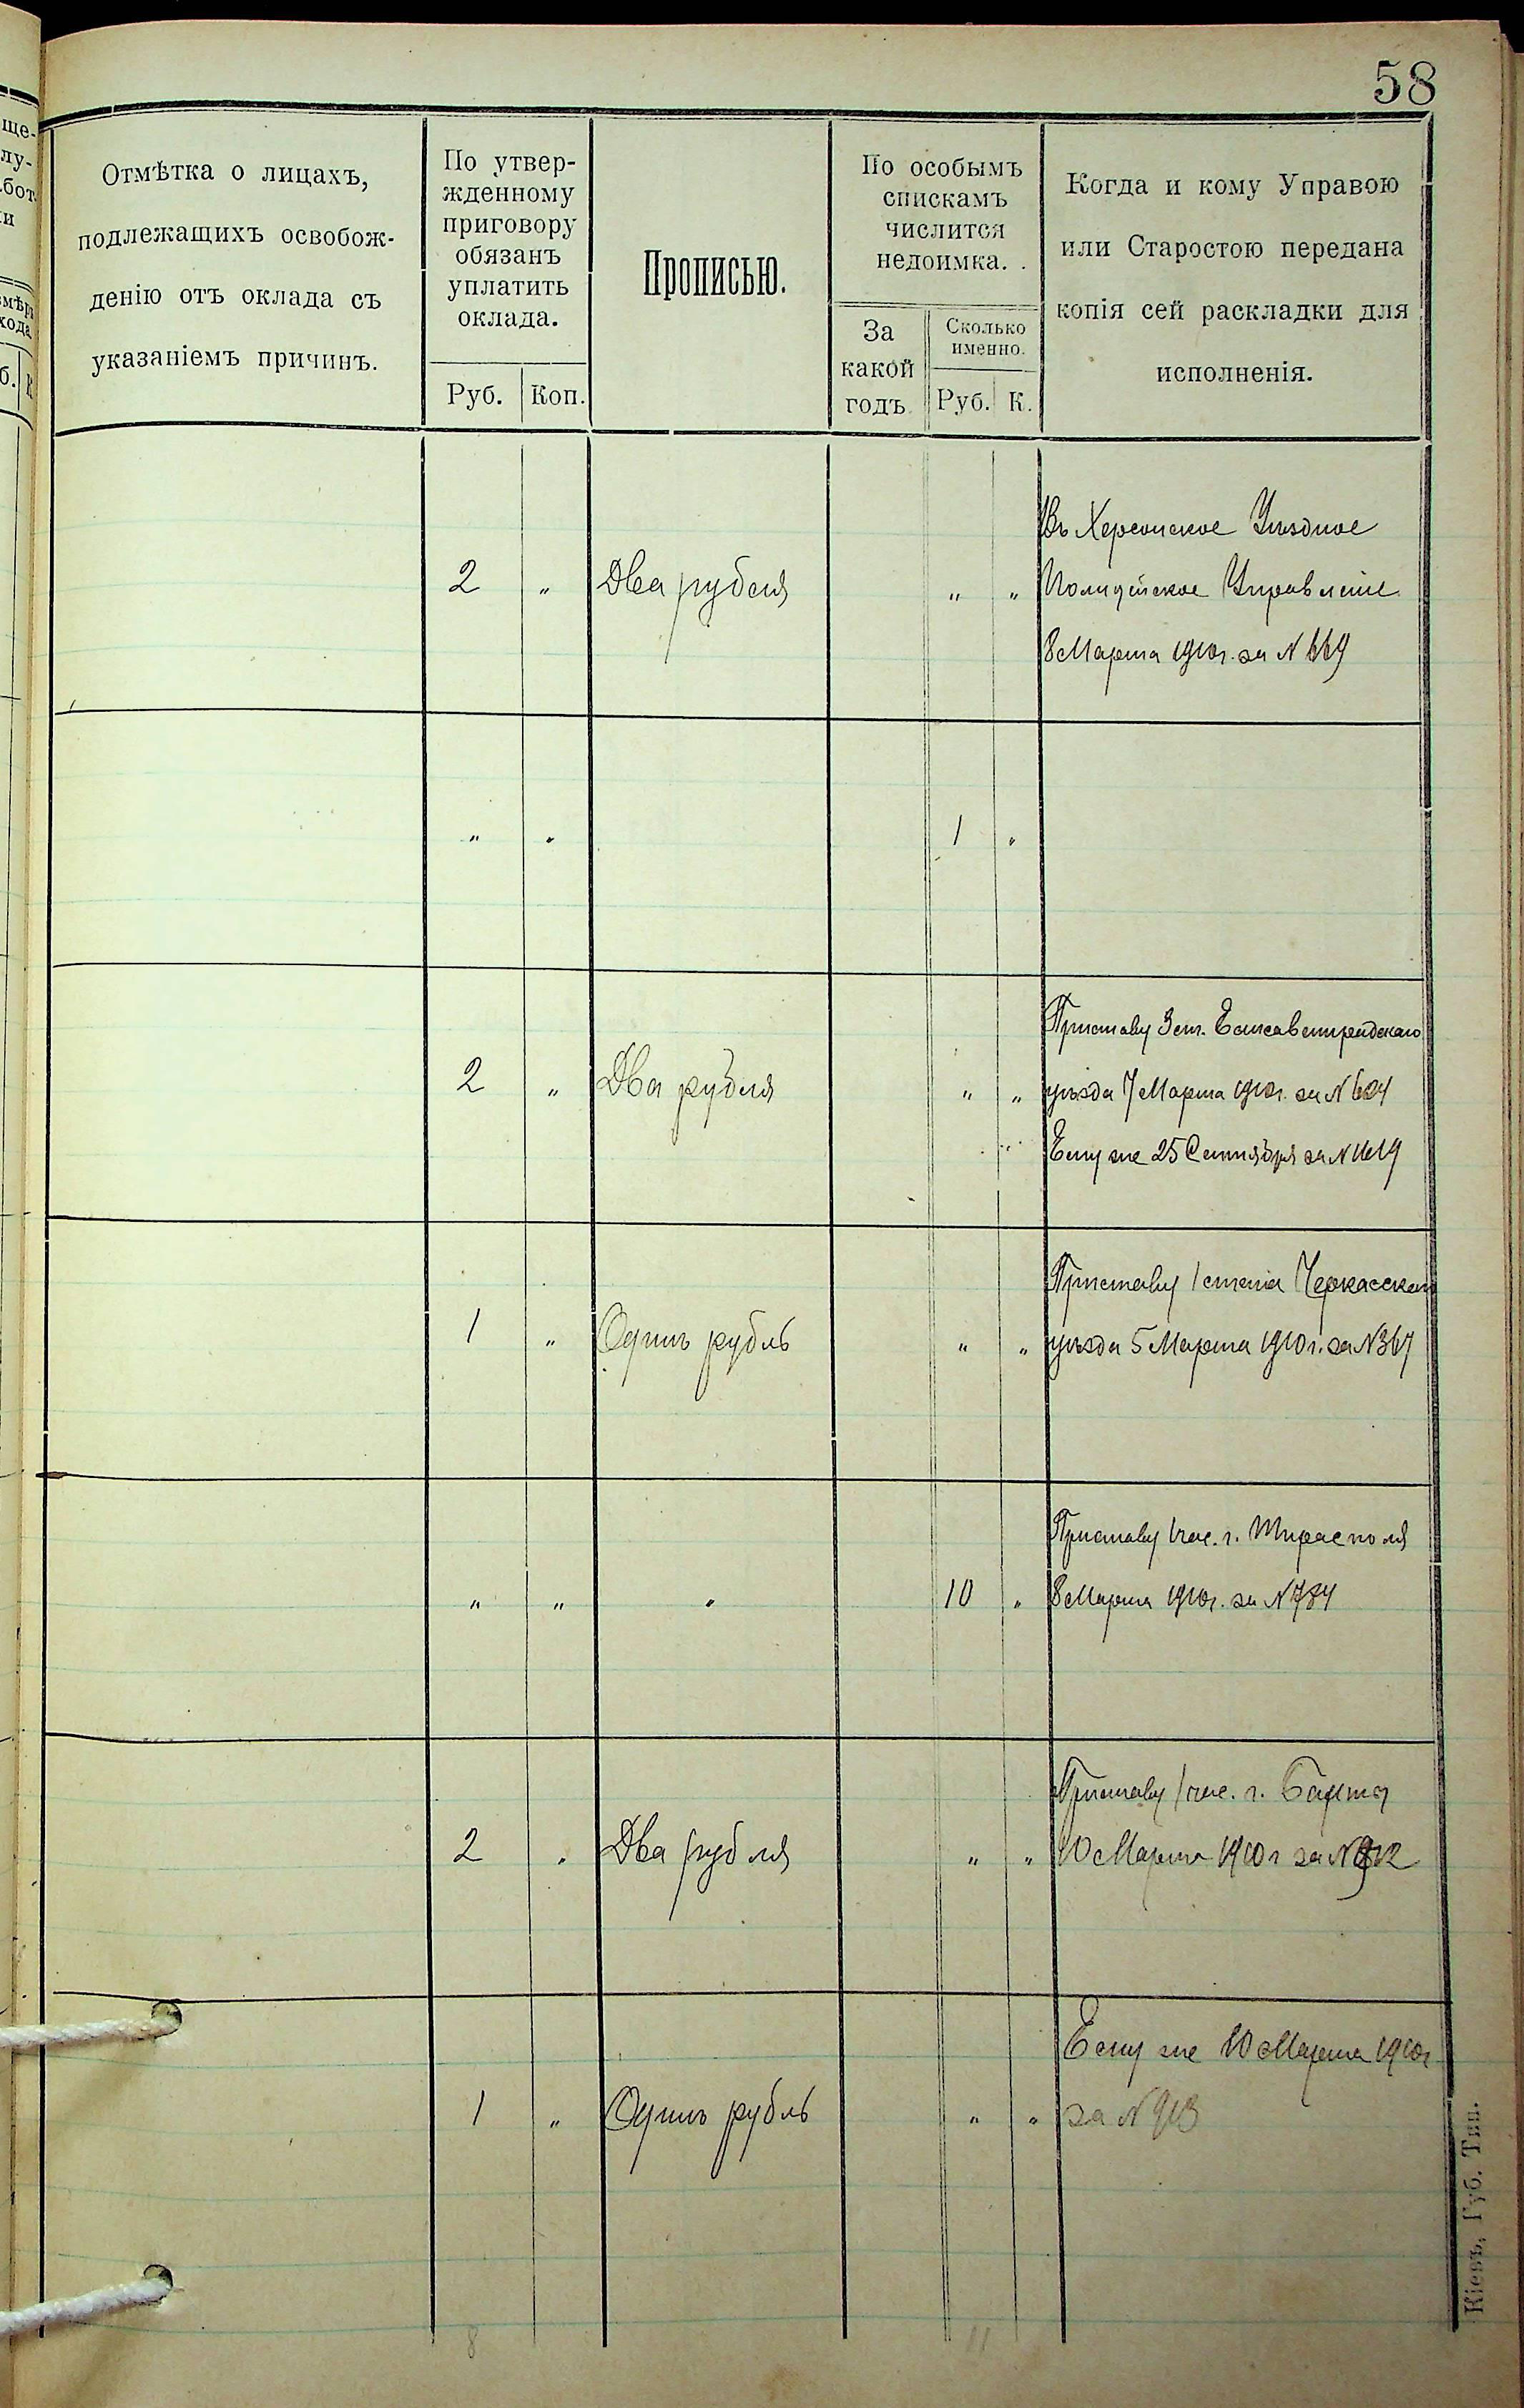 58
ще-
лу-
бот.
и
Отмѣтка о лицахъ,
подлежащихъ освобож-
денію отъ оклада съ
указаніемъ причинъ.
По утвер-
жденному
приговору
обязанъ
уплатить
оклада.
Руб. Коп.
Прописью.
По особымъ
спискамъ
числится
недоимка.
За
какой
годъ
Сколько
именно.
Руб. К.
Когда и кому Управою
или Старостою передана
копія сей раскладки для
исполненія.
Въ Херсонское Уѣздное
2 " Два рубля " " Полицейское Управленіе
8 Марта 1910г. за N 669
" " 1 "
Приставу 3 ст. Елисаветградскаго
2 " Два рубля " " уѣзда 7 Марта 1910г. за N
Ему же 25 Сентября за N
Приставу 1 стана Черкасскаго
1 " Одинъ рубль " " уѣзда 5 Марта 1910г. за N 367
Приставу 1 час. г. Тирасполя
" " " 10 " 8 Марта 1910г. за N 784
Приставу 1 час. г. Балты
2 " Два рубля " " 10 Марта 1910г за N 912
Ему же 10 Марта 1910г
1 " Одинъ рубль " " за N 913
8 11
Кіевъ, Губ. Тип.